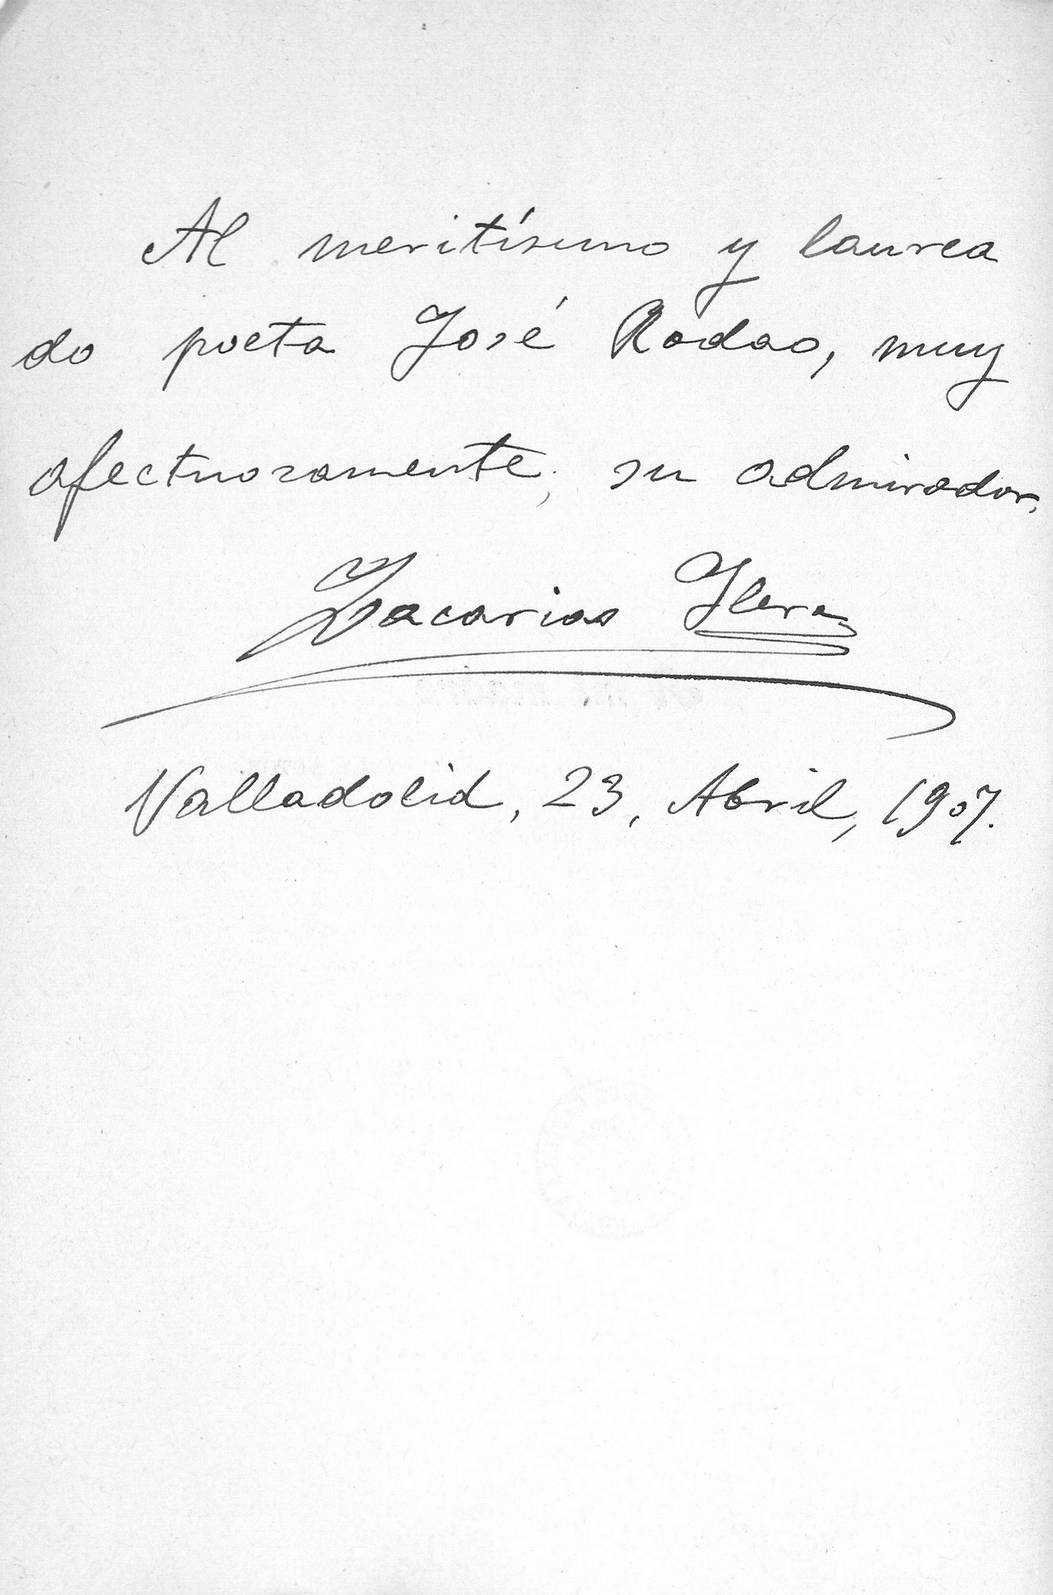 Al meritísimo y laurea
do poeta José Rodao, muy
afectuosamente, su admirador,
Zacarias Ylera
Valladolid, 23, Abril, 1907.